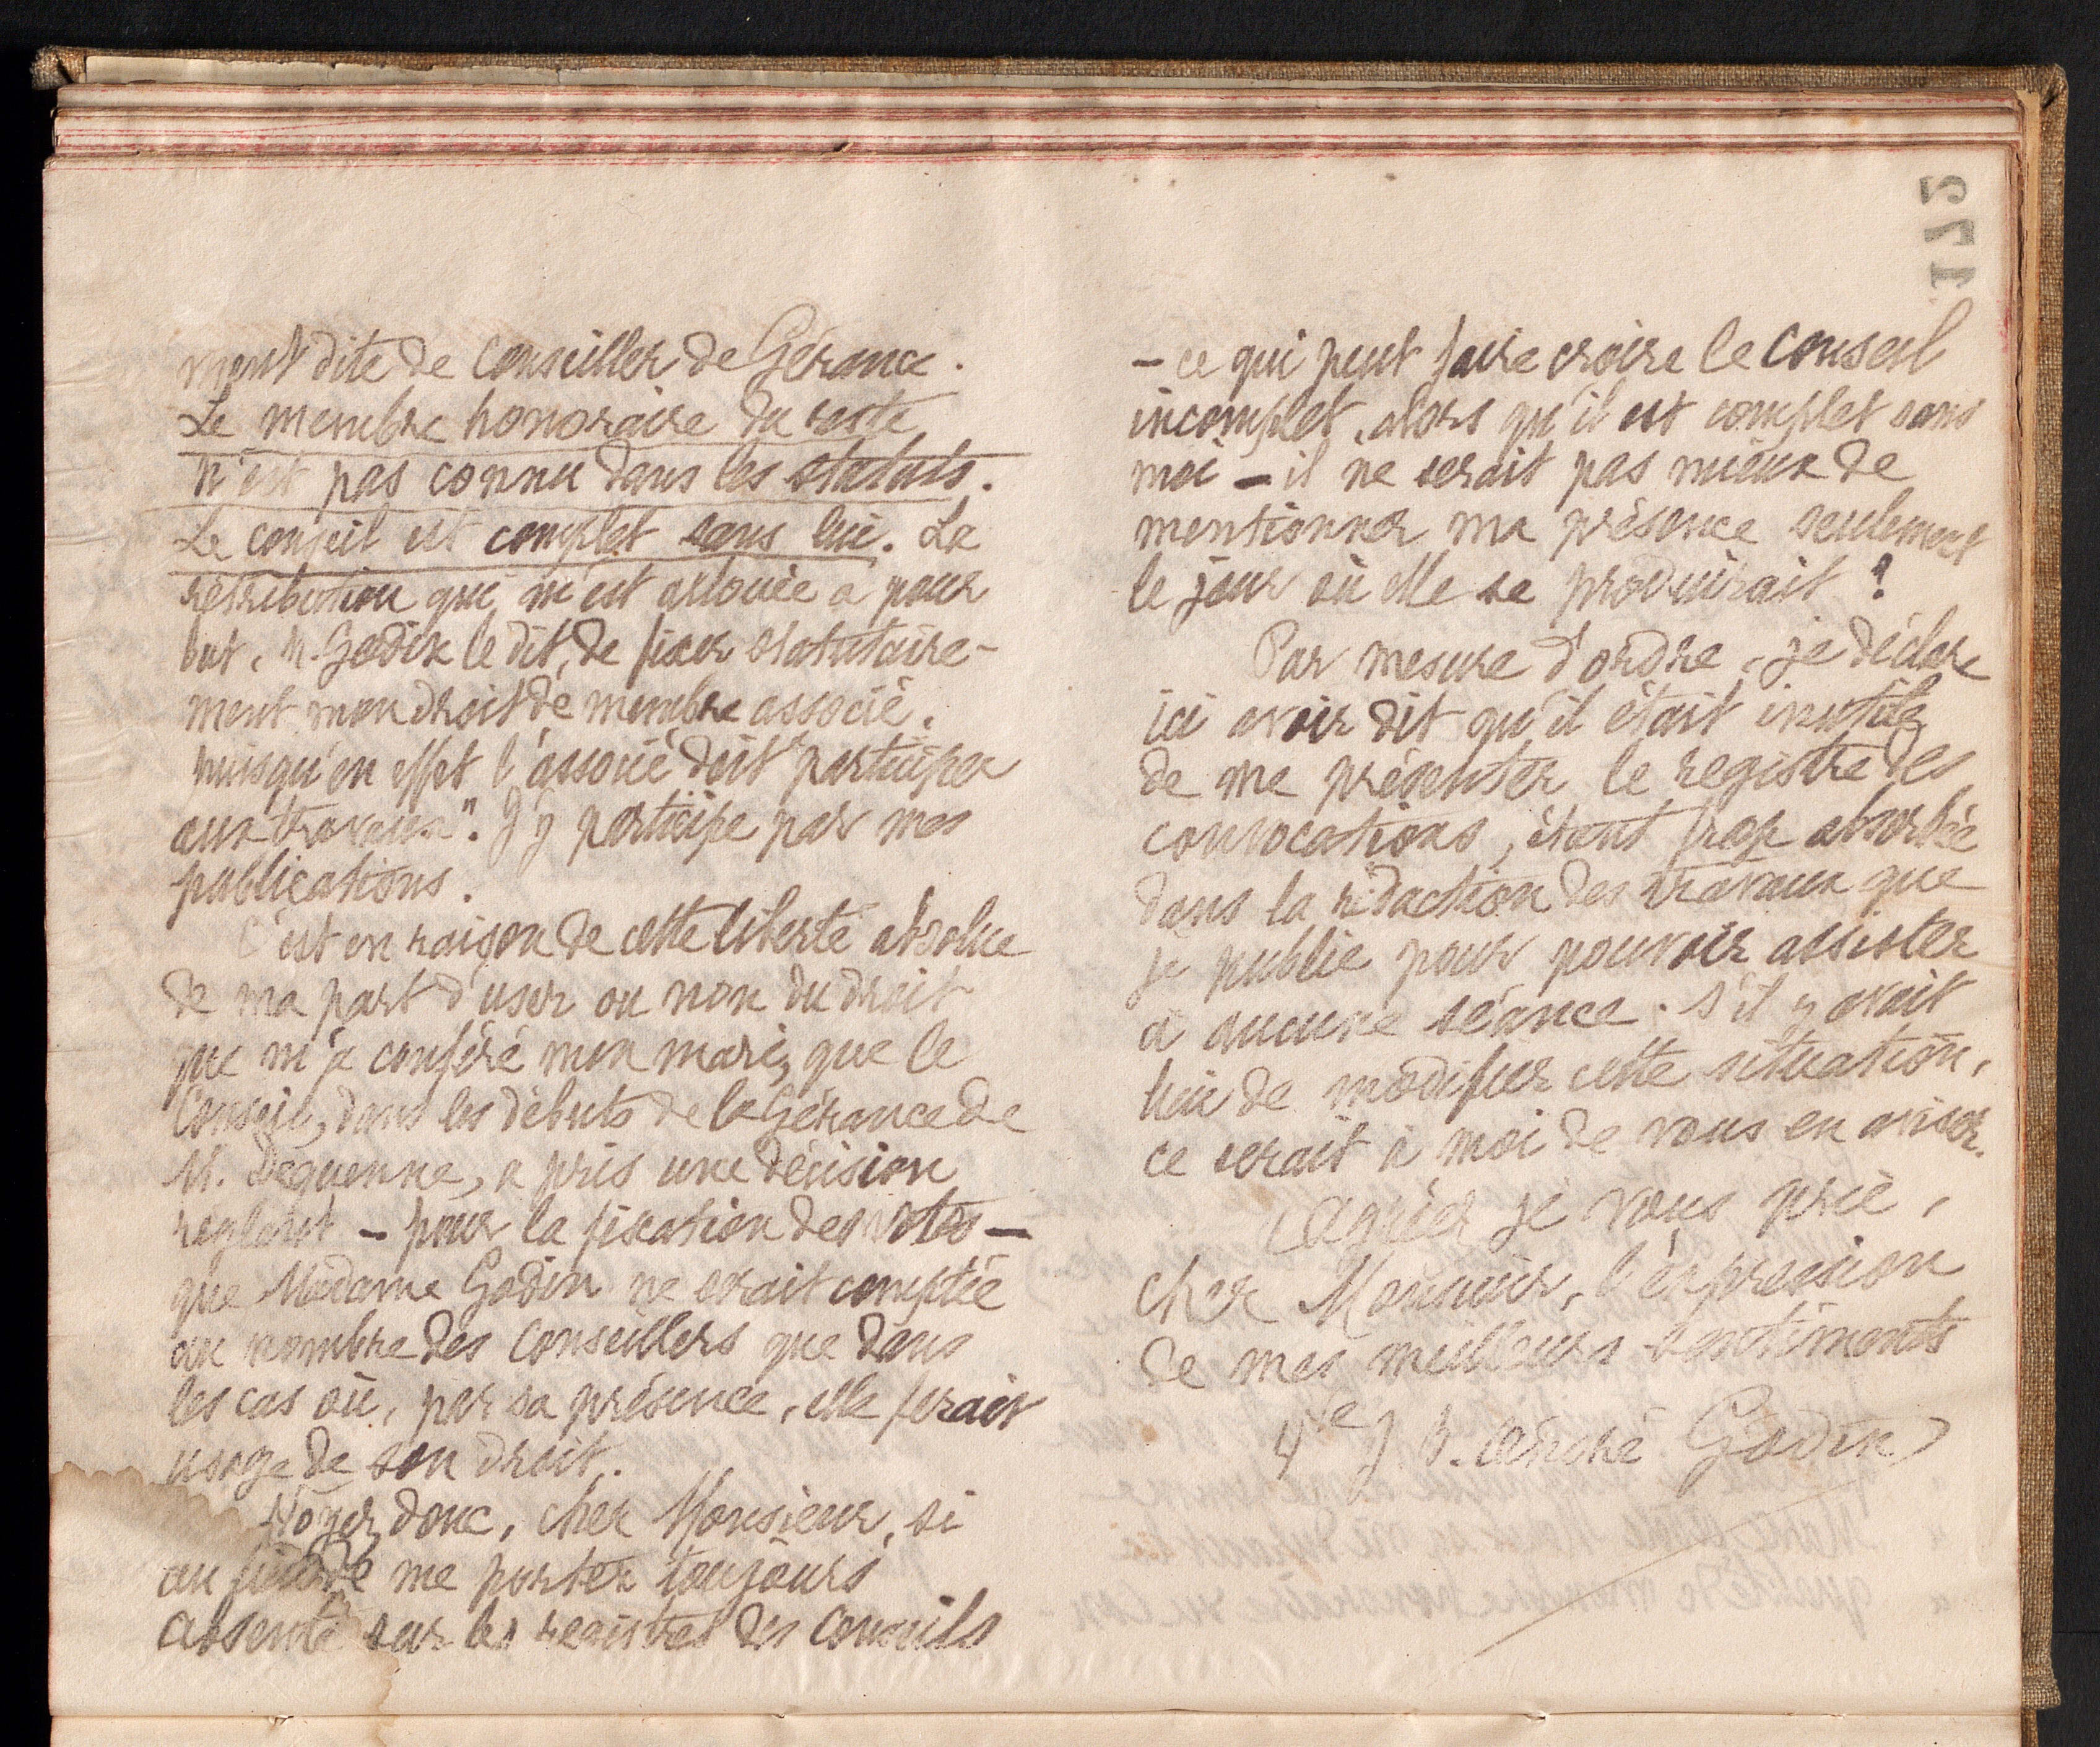 ment dite de Conseiller de Gérance.
Le membre honoraire du reste
n'est pas connu dans les statuts.
Le conseil est complet sans lui. La
rétribution qui m'est allouée a pour
but, M. Godin le dit, de fixer statutaire-
ment mon droit de membre associé.
puisqu'en effet l'associé doit "participer
aux travaux". J'y participe par mes
publications.
C'est en raison de cette liberté absolue
de ma part d'user ou non du droit
que m'a conféré mon mari, que le
Conseil, dans les débuts de la Gérance de
M. Dequenne, a pris une décision
réglant - pour la fixation des votes -
que Madame Godin ne serait comptée
au nombre des Conseillers que dans
les cas où, par sa présence, elle ferait
usage de son droit.
Voyez donc, cher Monsieur, si
au lieu de me porter toujours
absente sur les registres des Conseils
175
- ce qui peut faire croire le Conseil
incomplet, alors qu'il est complet sans
moi - il ne serait pas mieux de
mentionner ma présence seulement
le jour où elle se produirait ?
Par mesure d'ordre, je déclare
ici avoir dit qu'il était inutile
de me présenter le registre des
convocations, étant trop absorbée
dans la rédaction des travaux que
je publie pour pouvoir assister
à aucune séance. S'il y avait
lieu de modifier cette situation,
ce serait à moi de vous en aviser.
Agréez je vous prie,
cher Monsieur, l'expression
de mes meilleurs sentiments
Vve J. B. André Godin